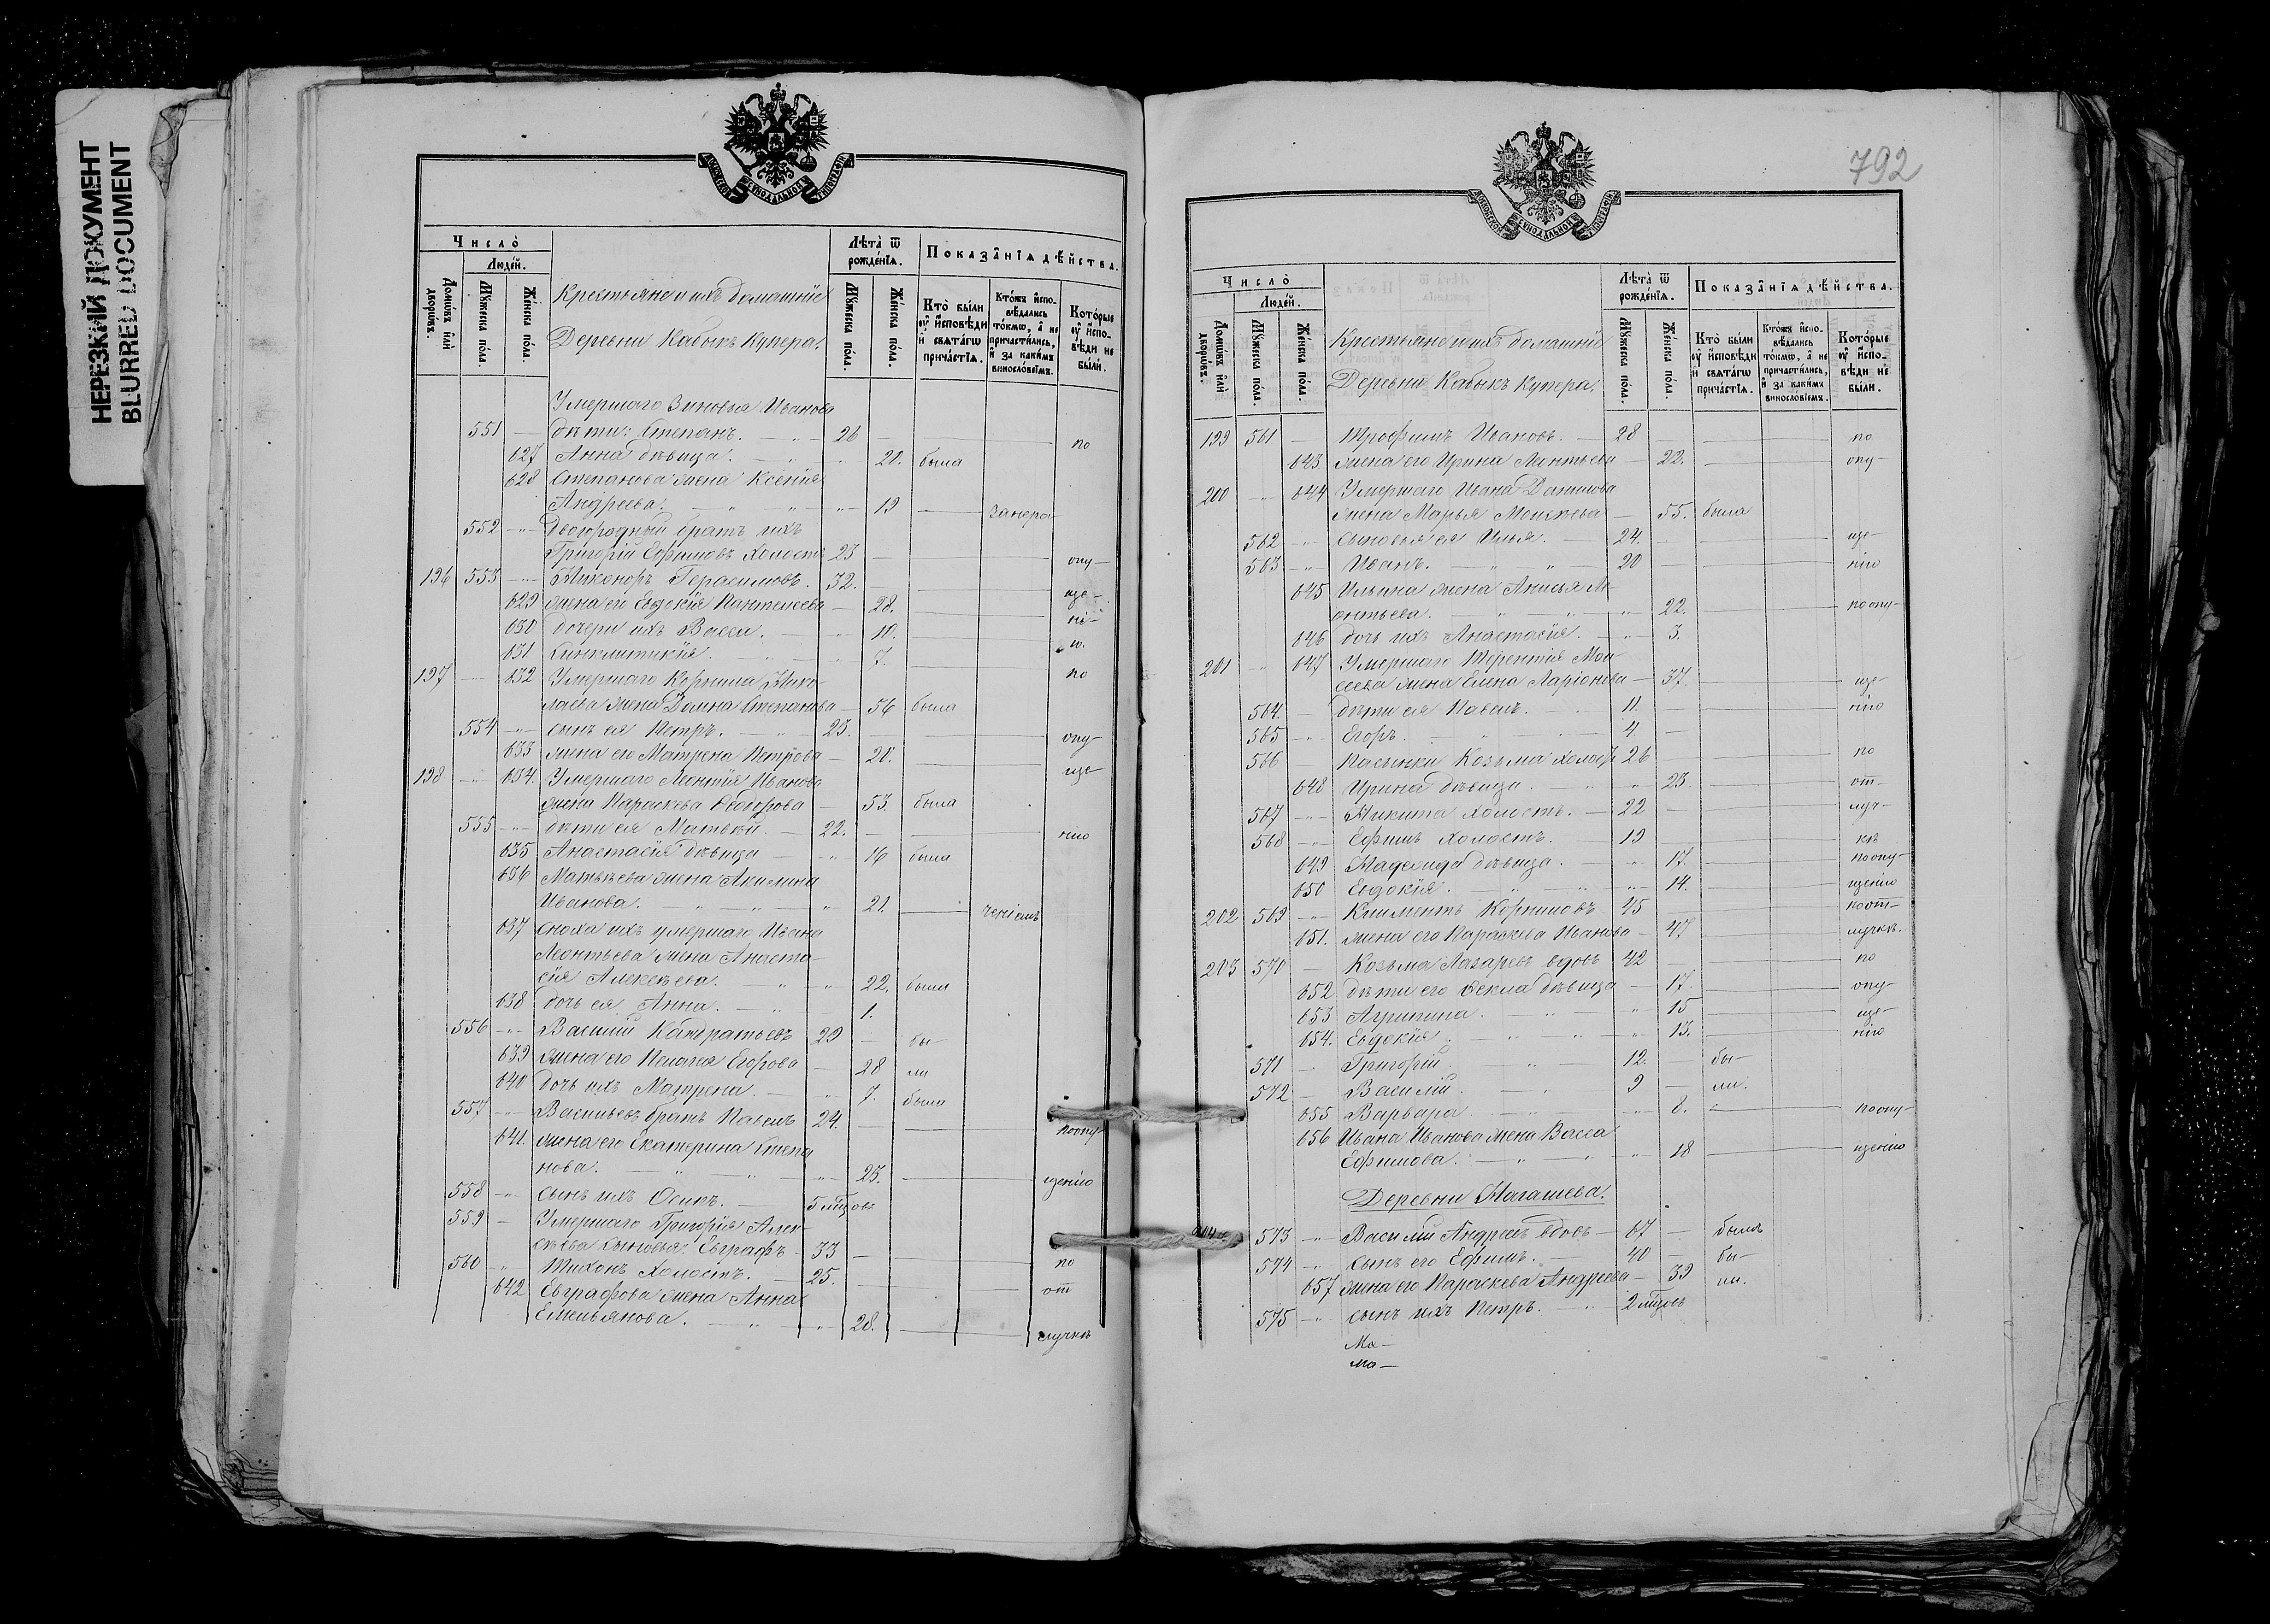 НЕРЕЗКИЙ ДОКУМЕНТ
BLURRED DOCUMENT
МОСКОВСКОЙ СѴНОДАЛЬНОЙ ТИПОГРАФІИ
Число̀
Люде́й.
Домѡ́въ и҆лѝ дворѡ́въ.
Мꙋ́жеска по́ла.
Же́нска по́ла.
Крестьяне и ихъ домашніе
Деревни Кабыкъ Купера.
Лѣта̀ ѿ рожде́нїѧ.
Мꙋ́жеска по́ла.
Же́нска по́ла.
Показа̑нїѧ дѣ́йства.
Кто̀ бы́ли оу҆ и҆сповѣ́ди и҆ свѧта́гѡ прича́стїѧ.
Кто́жъ и҆спо­вѣ́дались то́кмѡ, а҆ не причасти́лись, и҆ за каки́мъ винословїемъ.
Кото́рые оу҆ и҆спо­вѣ́ди не бы́ли.
Умершаго Зиновья Иванова
551 — дѣти: Степанъ. — „ — 26 — по
627 Анна дѣвица. — „ 21. была
628 Степанова жена Ксенія
Андреева. — „ — 19 — занера-
552 — Двоюродный братъ ихъ
Григорій Ефимовъ холостъ 23 — опу-
196 553 — Никоноръ Герасимовъ. 32. — ще-
629 жена его Евдокія Пантелеева — 28. — ні-
630 дочери ихъ Васса. — 10. — ю.
631 Синклитикія. — 7. —
197 — 632 Умершаго Корнила Нико- по
лаева жена Домна Степанова — 56 была
554 — сынъ ея Петръ. — 23. — опу-
633 жена его Матрена Петрова — 20. — ще-
198 — 634. Умершаго Леонтія Иванова
жена Параскева Ѳеодорова — 53. была
555 — дѣти ея Матвѣй. — 22. — нію
635 Анастасія дѣвица — 16 была
636 Матвѣева жена Акилина
Иванова. — „ — 21. — ченіемъ
637 сноха ихъ умершаго Ивана
Леонтьева жена Анаста-
сія Алексѣева. — „ 22. была
638 дочь ея Анна. — „ 1.
556 — Василій Кандратьевъ 29 — бы-
639 жена его Пелагея Егорова — 28 ли
640 дочь ихъ Матрена. — „ 7. была
557 — Васильевъ братъ Павелъ 24. — поопу-
641. жена его Екатерина Степа
нова. — „ — 25. — щенію
558 — сынъ ихъ Осипъ. — 5 мѣ̃цовъ
559 — Умершаго Григорія Алек-
сѣева сыновья: Евграфъ — 33 — по
560 — Тихонъ холостъ. — 25. — от
642 Евграфова жена Анна
Емельянова. — „ — 28. — лучкѣ
792
МОСКОВСКОЙ СѴНОДАЛЬНОЙ ТИПОГРАФІИ
Число̀
Люде́й.
Домѡ́въ и҆лѝ дворѡ́въ.
Мꙋ́жеска по́ла.
Же́нска по́ла.
Крестьяне и ихъ домашніе
Деревни Кабыкъ Купера.
Лѣта̀ ѿ рожде́нїѧ.
Мꙋ́жеска по́ла.
Же́нска по́ла.
Показа̑нїѧ дѣ́йства.
Кто̀ бы́ли оу҆ и҆сповѣ́ди и҆ свѧта́гѡ прича́стїѧ.
Кто́жъ и҆спо­вѣ́дались то́кмѡ, а҆ не причасти́лись, и҆ за каки́мъ винословїемъ.
Кото́рые оу҆ и҆спо­вѣ́ди не бы́ли.
199 561 — Трофимъ Ивановъ. — 28 — по
643 жена его Ирина Леонтьева — 22. — опу-
200 — 644 Умершаго Ивана Данилова
жена Марья Моисеева — 55. была
562 — сыновья ея Илья. — 24. — ще-
563 — Иванъ. — „ — 20 — нію
645 Ильина жена Анисья Ле-
онтьева. — „ 22. — поопу-
646 дочь ихъ Анастасія. — 3.
201 — 647 Умершаго Терентія Мои
сеева жена Елена Ларіонова — 37. — ще-
564. — дѣти ея Павелъ. — 11 — нію
565 — Егоръ. — 4 —
566 — пасынки Козьма холос̃ 26 — по
648 Ирина дѣвица. — „ 23. — от-
567 — Никита холостъ. — 22 — луч-
568 — Ефимъ холостъ. — 19 — кѣ
649 дѣвица. — 17. — поопу-
650 Евдокія. — „ — 14. — щенію
202 569 — Климентъ Корниловъ 45 — поот-
651. жена его Параскева Иванова — 47 — лучкѣ.
203 570 — Козьма Лазаревъ вдовъ 42 — по
652 дѣти его Ѳекла дѣвица — 17. — опу-
653 Агрипина. — „ — 15 — ще-
654. Евдокія. — „ — 13. — нію
571 — Григорій. — „ — 12. — бы-
572 — Василій. — „ 9 — ли.
655 Варвара. — „ — 8. — поопу-
656 Ивана Иванова жена Васса
Ефимова. — „ — 18 — щенію
Деревни Магашева.
204 573 — Василій Андреевъ вдовъ — 67 — былъ
574 — сынъ его Ефимъ. — 40 — бы-
657 жена его Параскева Андреева — 39 ли.
575 — сынъ ихъ Петръ. — 2 мѣ̃цовъ
Ма-
ма-